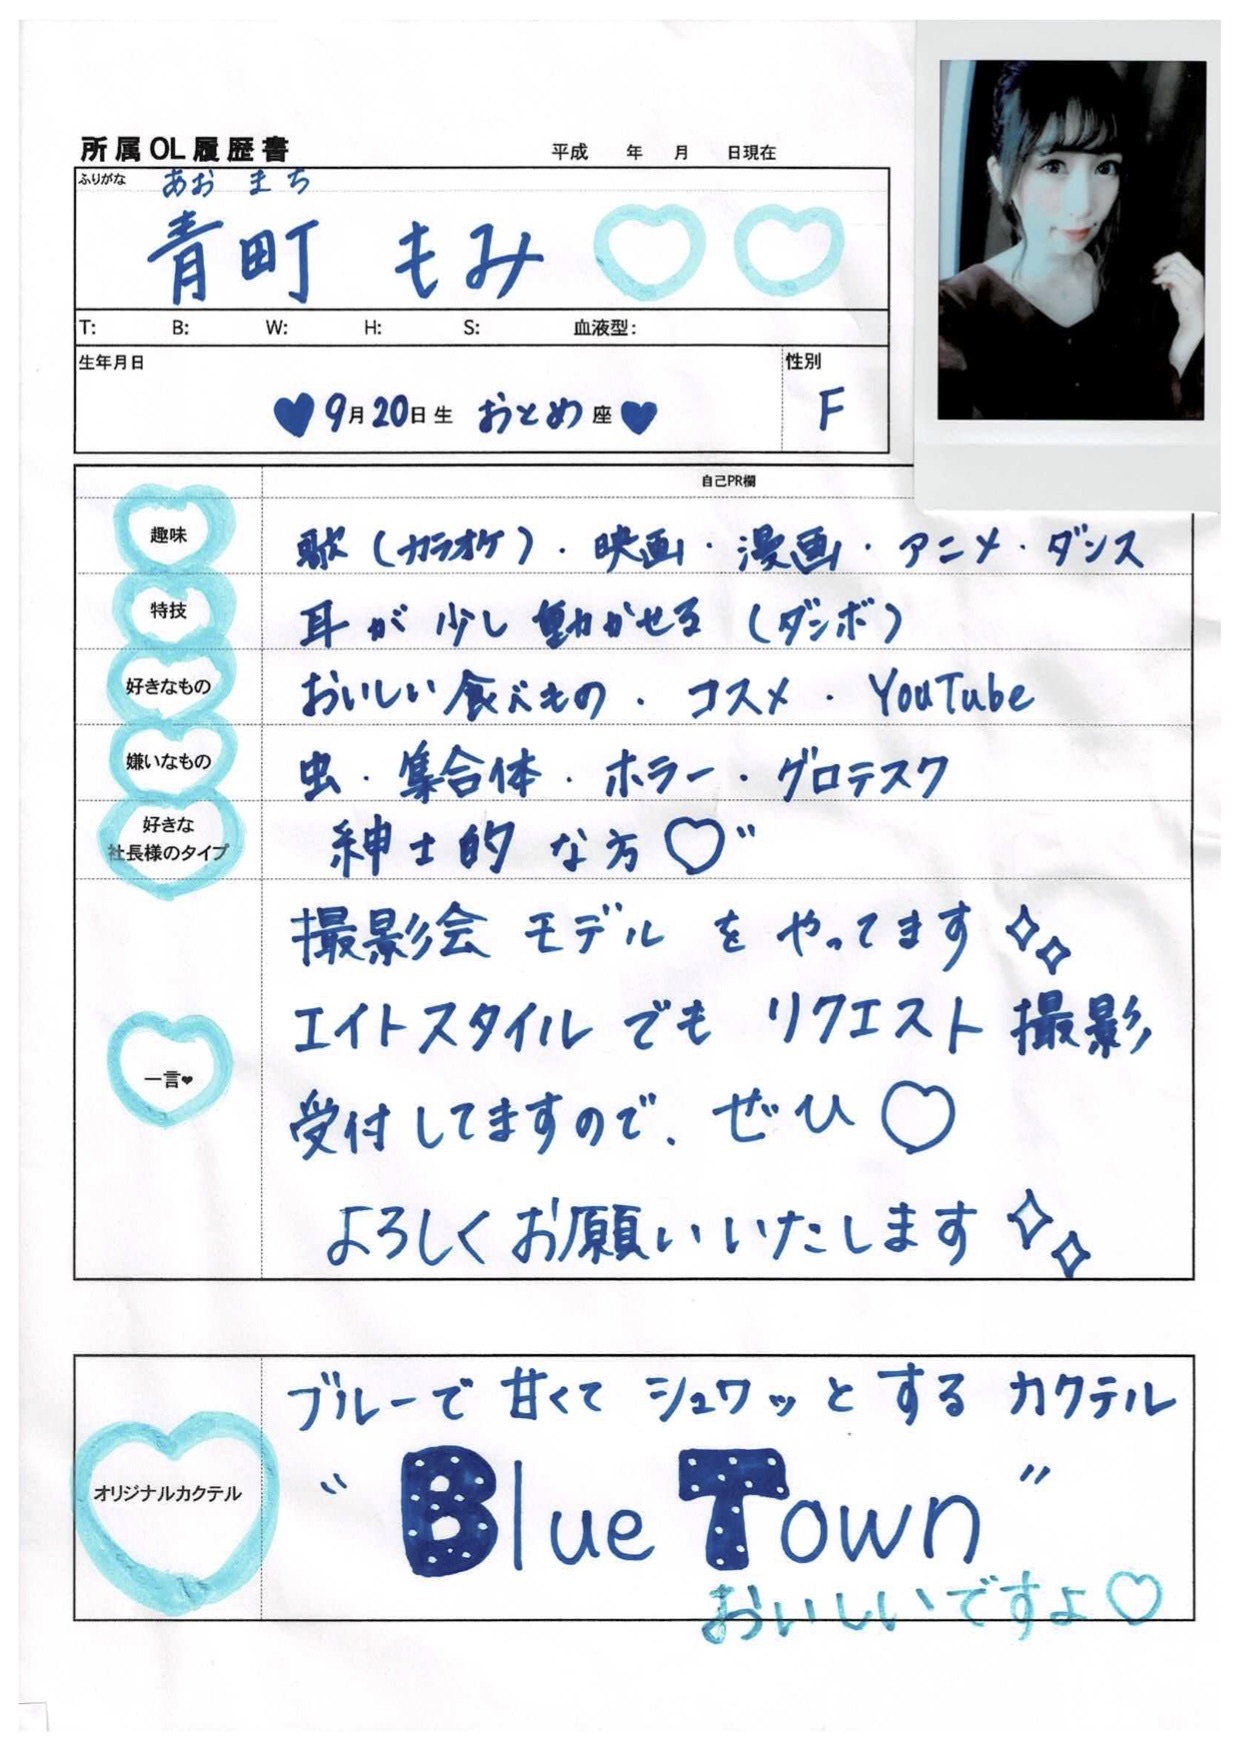 所属OL履歴書
平成 年 月 日現在
ふりがな あお まち
青町 もみ
T: B: W: H: S: 血液型:
生年月日
性別
♥9月20日生 おとめ座♥
F
自己PR欄
趣味 歌(カラオケ)・映画・漫画・アニメ・ダンス
特技 耳が少し動かせる(ダンボ)
好きなもの おいしい食べもの・コスメ・YouTube
嫌いなもの 虫・集合体・ホラー・グロテスク
好きな
社長様のタイプ 紳士的な方♡゛
撮影会モデルをやってます
エイトスタイルでもリクエスト撮影
一言♥
受付してますので、ぜひ♡
よろしくお願いいたします
ブルーで甘くてシュワッとするカクテル
オリジナルカクテル
“Blue Town”
おいしいですよ♡